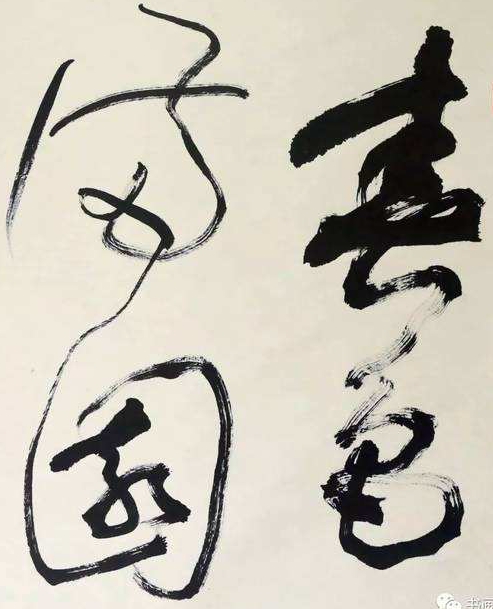 春色
满园
书画